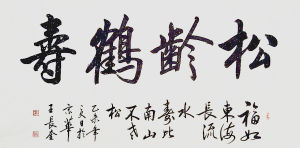 松齡鶴壽
福如
東海
長流
水
壽比
南山
不老
松
乙未年
日於
京華
王長